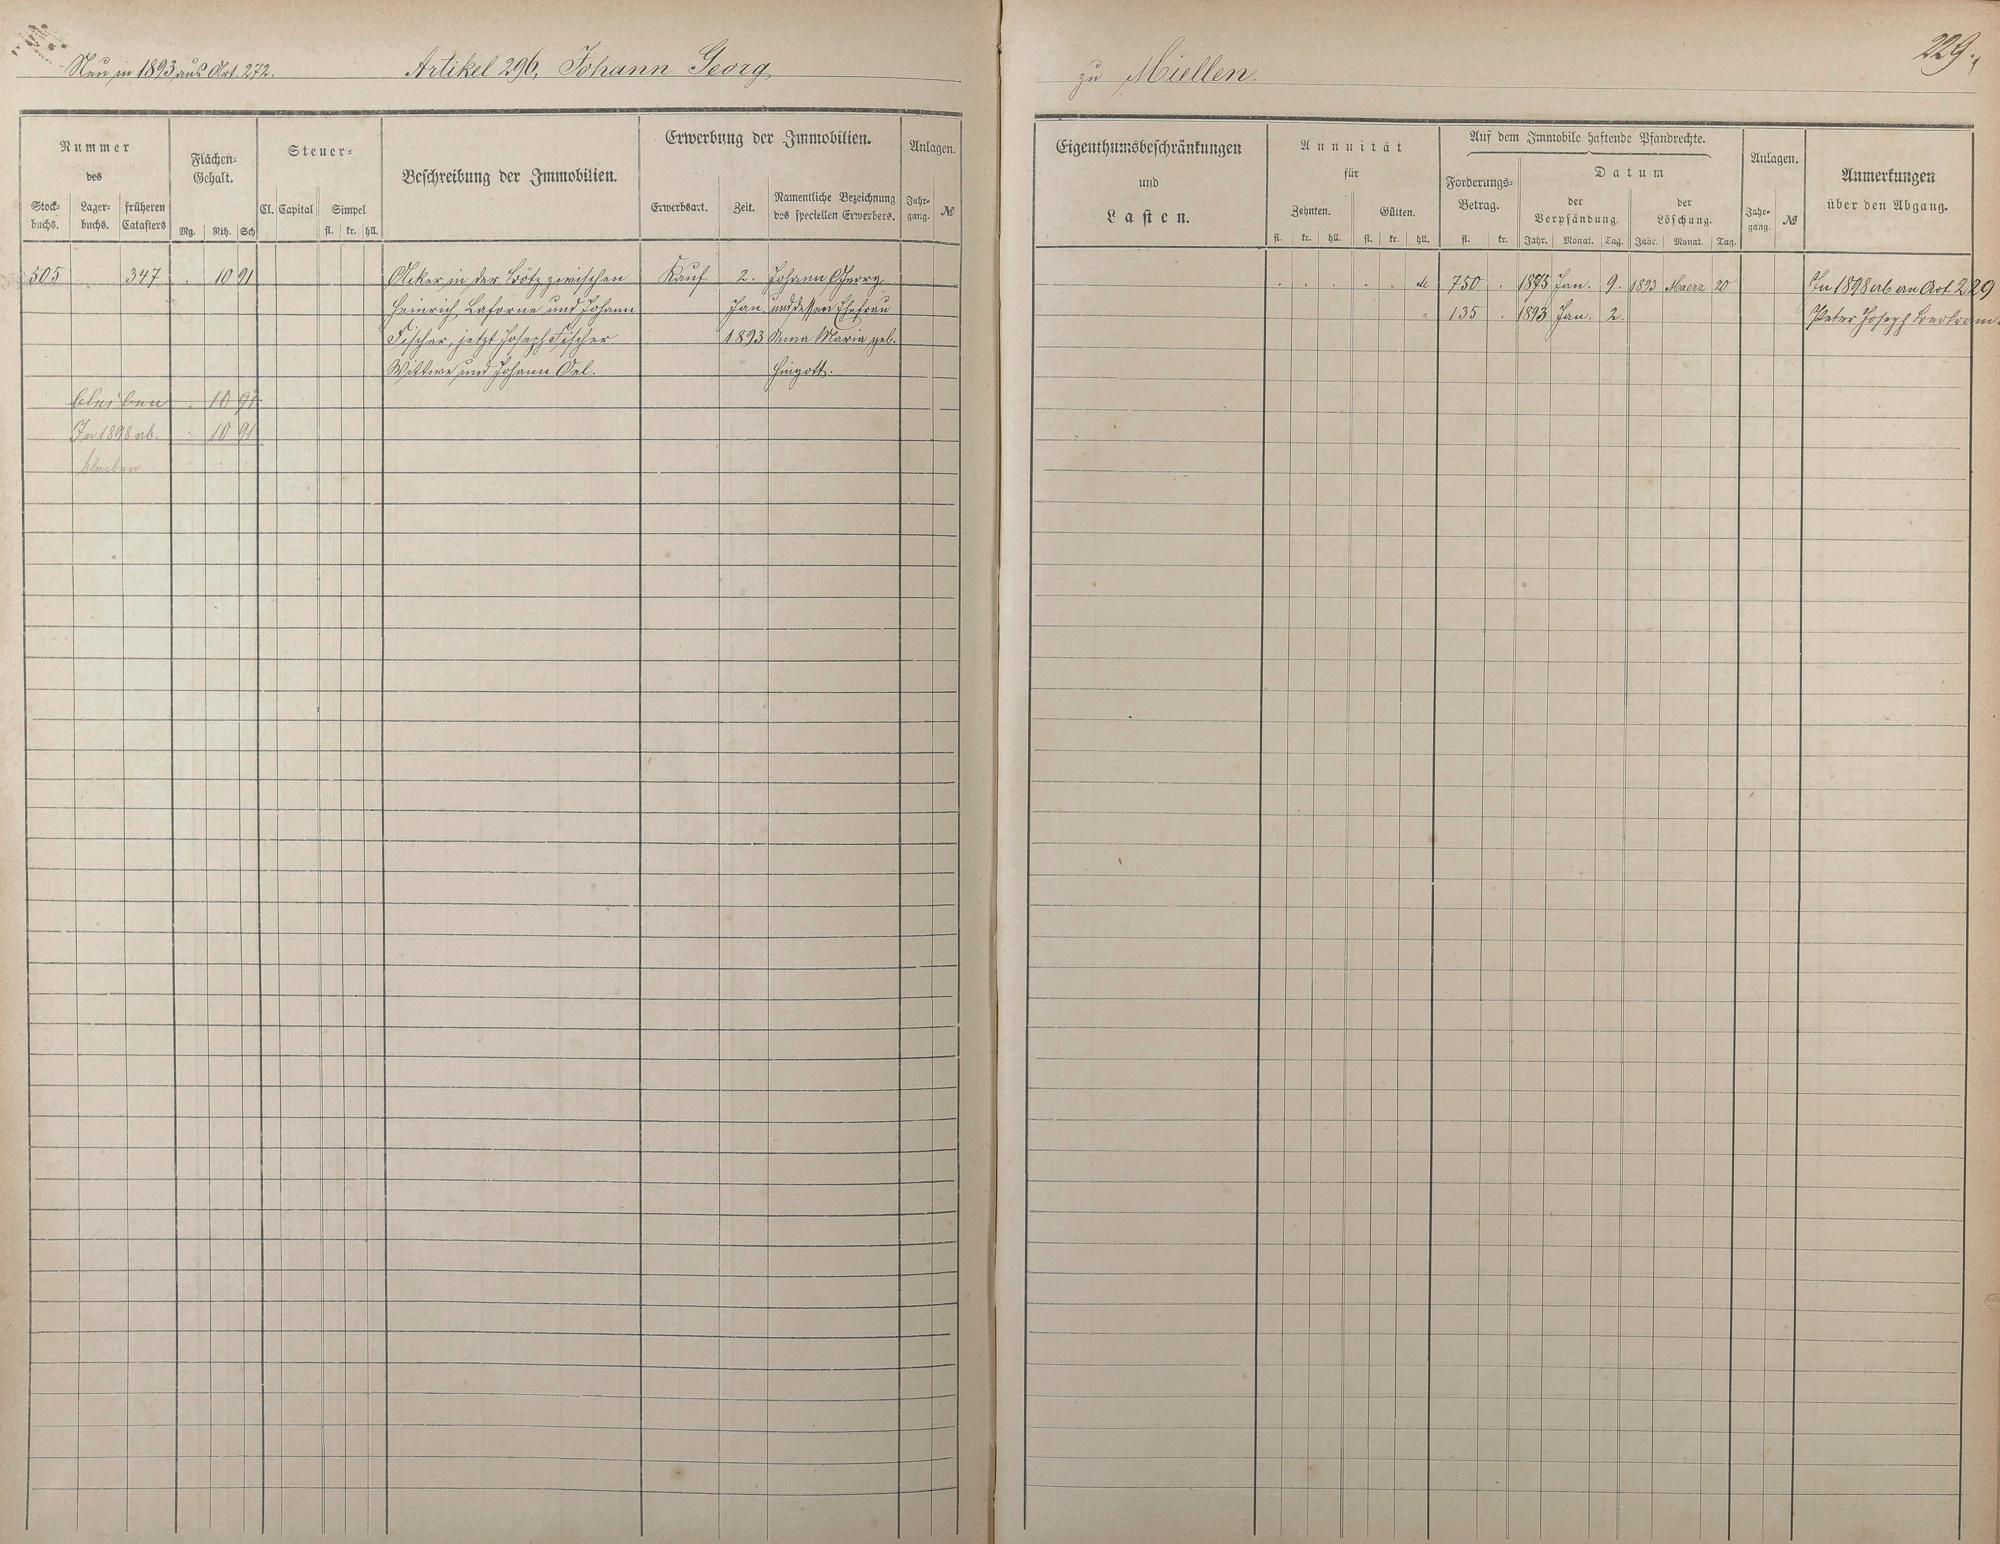 Neu in 1893 aus Art. 272.
Artikel 296, Johann Georg
Nummer
des
Stock-
buchs.
Lager-
buchs.
früheren
Catasters
Flächen-
Gehalt.
Mg. Rth. Sch
Steuer-
Cl. Capital Simpel
fl. kr. hll.
Beschreibung der Immobilien.
Erwerbung der Immobilien.
Erwerbsart. Zeit.
Namentliche Bezeichnung
des speciellen Erwerbers.
Anlagen.
Jahr-
gang.
№
505 347 . 10 91 Acker in der Götz zwischen Kauf 2. Johann Georg
Heinrich Laforne und Johann Jan. und dessen Ehefrau
Fischer, jetzt Joseph Fischer 1893 Anna Maria geb.
Wittwe und Johann Oel. Hingott.
bleiben . 10 91
In 1898 ab. . 10 91
bleiben
229.
zu Miellen.
Eigenthumsbeschränkungen
und
Lasten.
Annuität
für
Zehnten. Gülten.
fl. kr. hll. fl. kr. hll.
Auf dem Immobile haftende Pfandrechte.
Forderungs-
Betrag.
fl. kr.
Datum
der
Verpfändung.
Jahr. Monat. Tag.
der
Löschung.
Jahr. Monat. Tag.
Anlagen.
Jahr-
gang.
№
Anmerkungen
über den Abgang.
. . . . . 750 . 1875 Jan. 9. 1893 Maerz 20 In 1898 ab an Art 229
135 . 1893 Jan. 2. Peter Joseph Bertram.